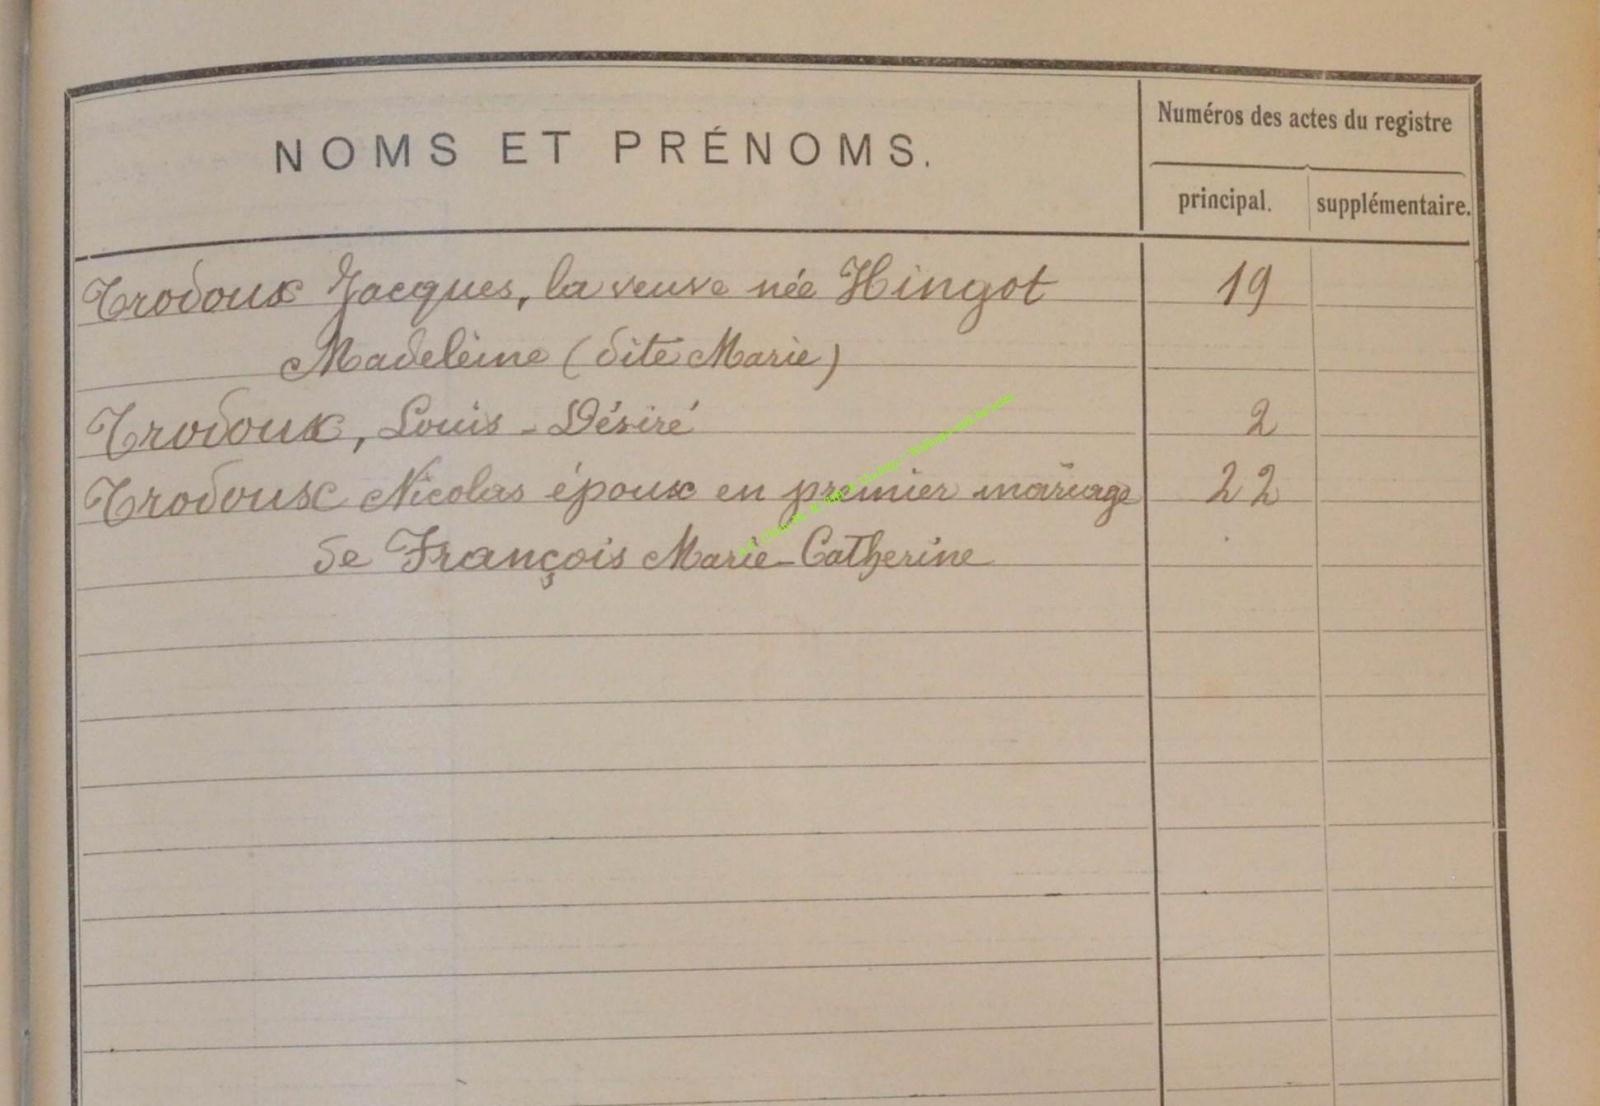 NOMS ET PRÉNOMS.
Numéros des actes du registre
principal. supplémentaire.
Trodoux Jacques, la veuve née Hingot 19
Madeleine (dite Marie)
Trodoux, Louis-Désiré 2
Trodoux Nicolas époux en premier mariage 22
de François Marie-Catherine